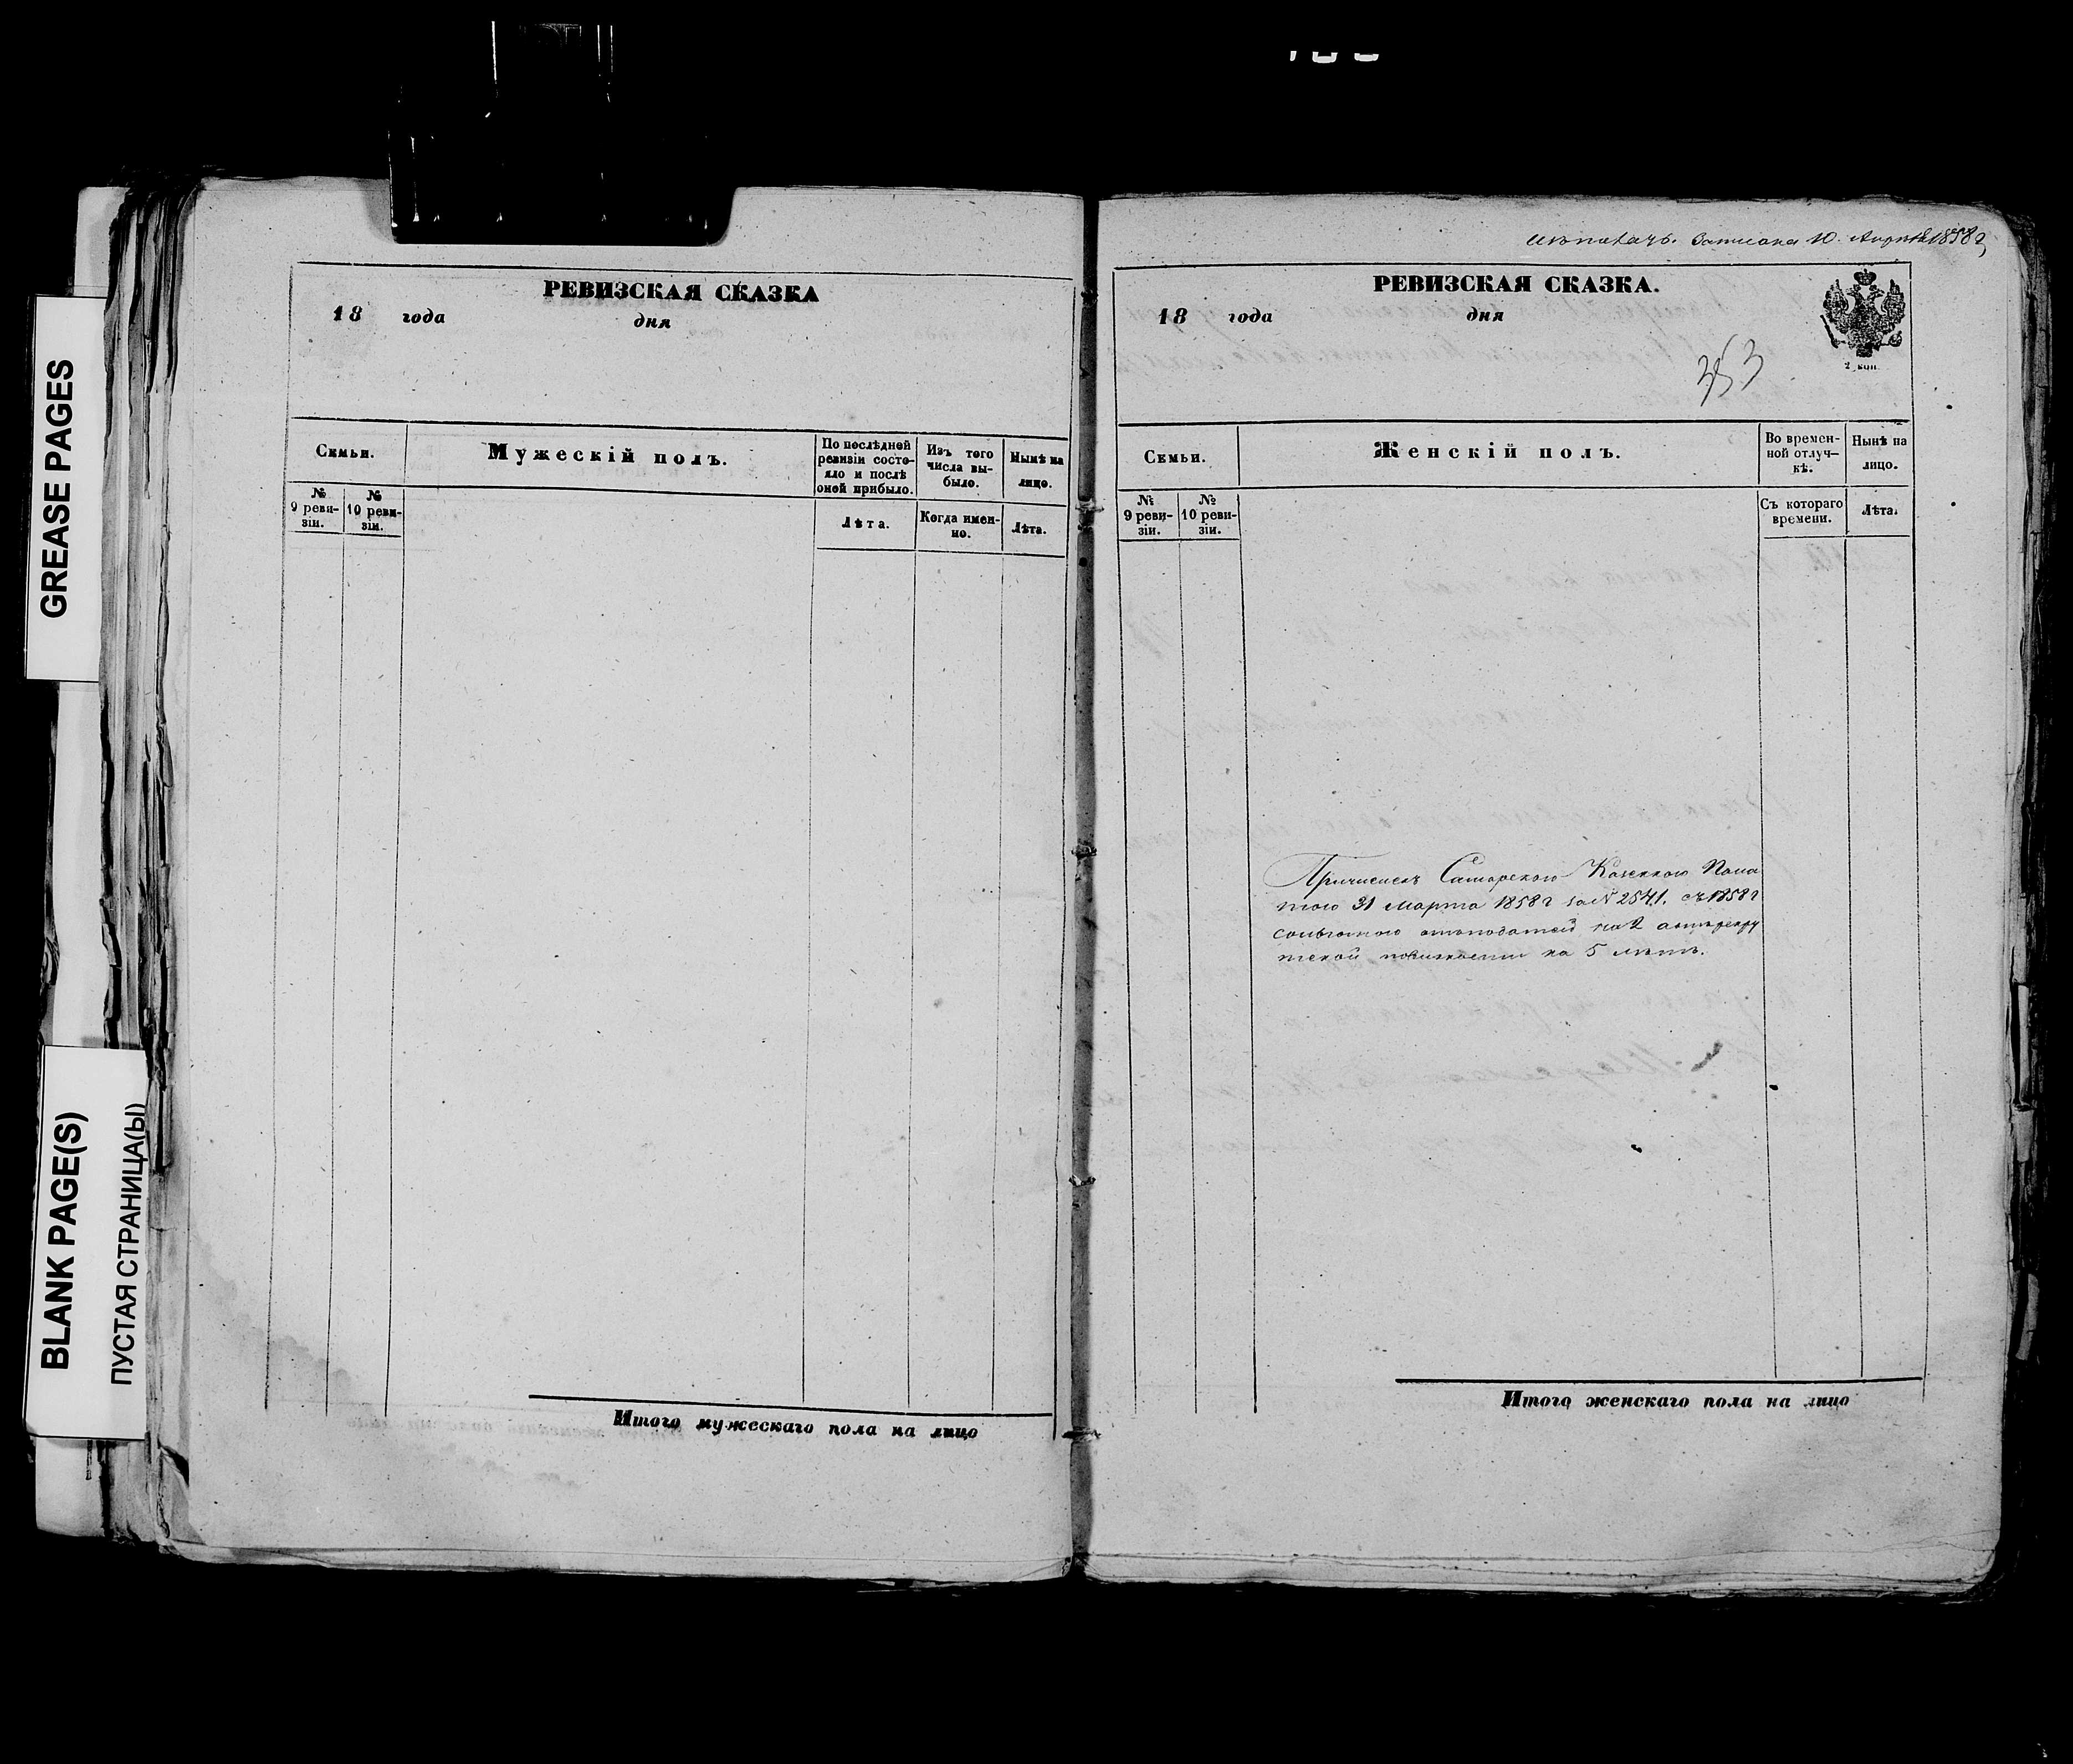 GREASE PAGES
BLANK PAGE(S)
ПУСТАЯ СТРАНИЦА(Ы)
РЕВИЗСКАЯ СКАЗКА
18 года дня
Семьи.
Мужескій полъ.
По послѣдней ревизіи состояло и послѣ оной прибыло.
Изъ того числа выбыло.
Нынѣ на лицо.
№ 9 ревизіи.
№ 10 ревизіи.
Лѣта.
Когда именно.
Лѣта.
Итого мужескаго пола на лицо
Записана 10 Апрѣля 1858 г
РЕВИЗСКАЯ СКАЗКА.
18 года дня
2 коп.
353
Семьи.
Женскій полъ.
Во временной отлучкѣ.
Нынѣ на лицо.
№ 9 ревизіи.
№ 10 ревизіи.
Съ котораго времени.
Лѣта.
Причисленъ Самарскою Казенною Пала
тою 31 Марта 1858 г за № 2541. съ 1858 г
сольготою отъ податей на 2 аотърекру
тской повинности на 5 лѣтъ.
Итого женскаго пола на лицо